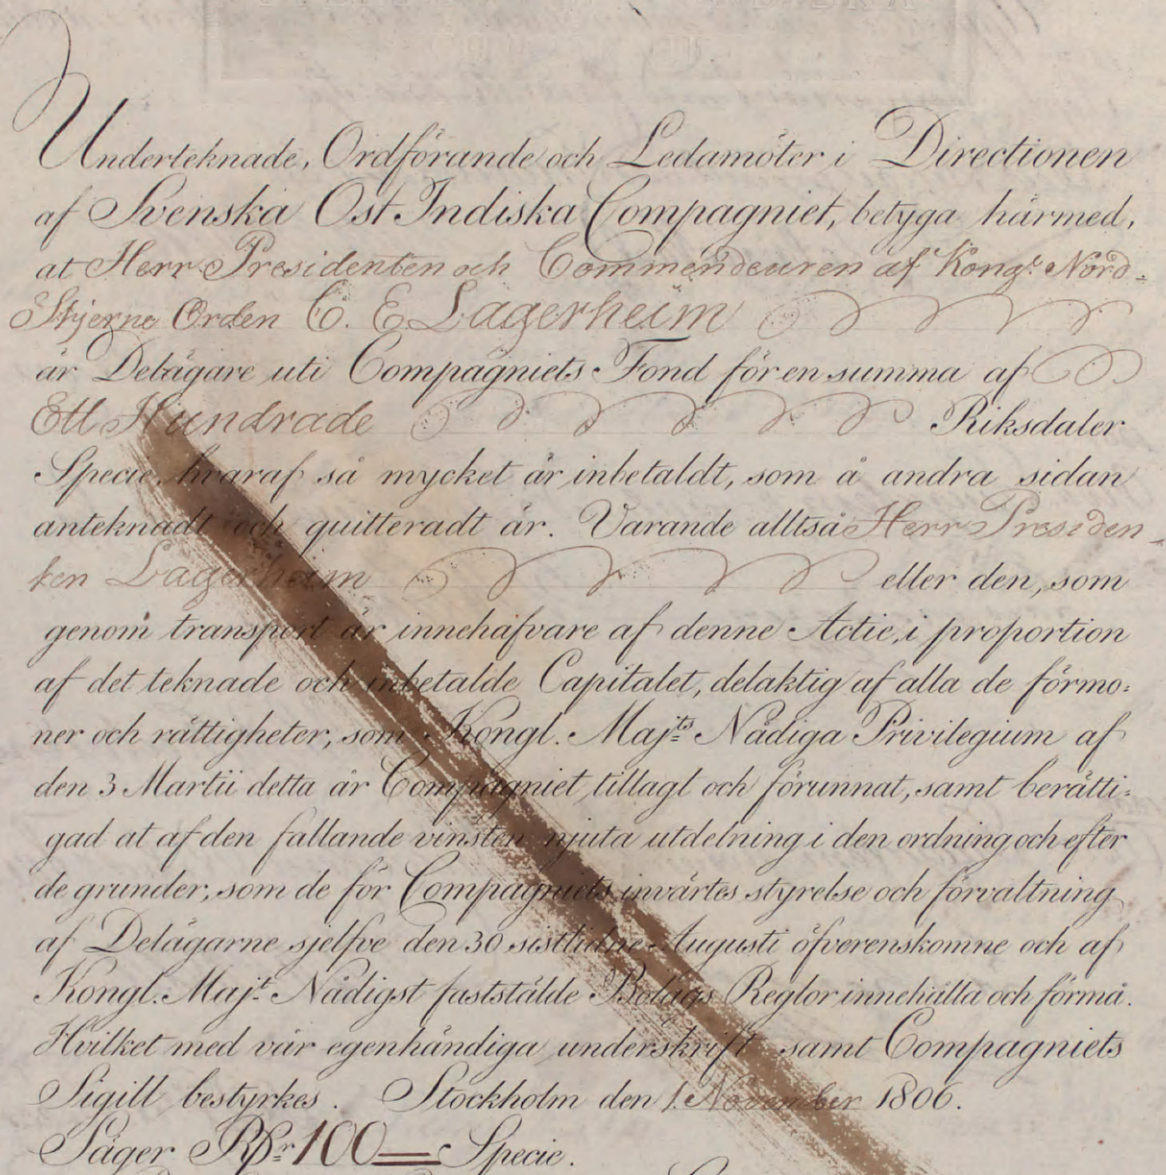 Underteknade, Ordförande och Ledamöter i Directionen
af Svenska Ost Indiska Compagniet, betyga härmed,
at Herr Presidenten och Commendeuren af Kongl. Nord-
Stjerne Orden C. E Lagerheim
är Delägare uti Compagniets Fond för en summa af
Ett Hundrade Riksdaler
Specie, hvaraf så mycket är inbetaldt, som å andra sidan
anteknadt och quitteradt är. Varande alltså Herr Presiden-
ten Lagerheim eller den, som
genom transport är innehafvare af denne Actie, i proportion
af det teknade och inbetalde Capitalet, delaktig af alla de förmo:
ner och rättigheter, som Kongl. Maj:ts Nådiga Privilegium af
den 3 Martii detta år Compagniet tillagt och förunnat, samt berätti:
gad at af den fallande vinsten njuta utdelning i den ordning och efter
de grunder, som de för Compagniets invärtes styrelse och förvaltning
af Delägarne sjelfve den 30 sistlidne Augusti öfverenskomne och af
Kongl. Maj:t Nådigst faststälde Bolags Reglor innehålla och förmå.
Hvilket med vår egenhändiga underskrift samt Compagniets
Sigill bestyrkes. Stockholm den 1. November 1806.
Säger Rdr 100 Specie.